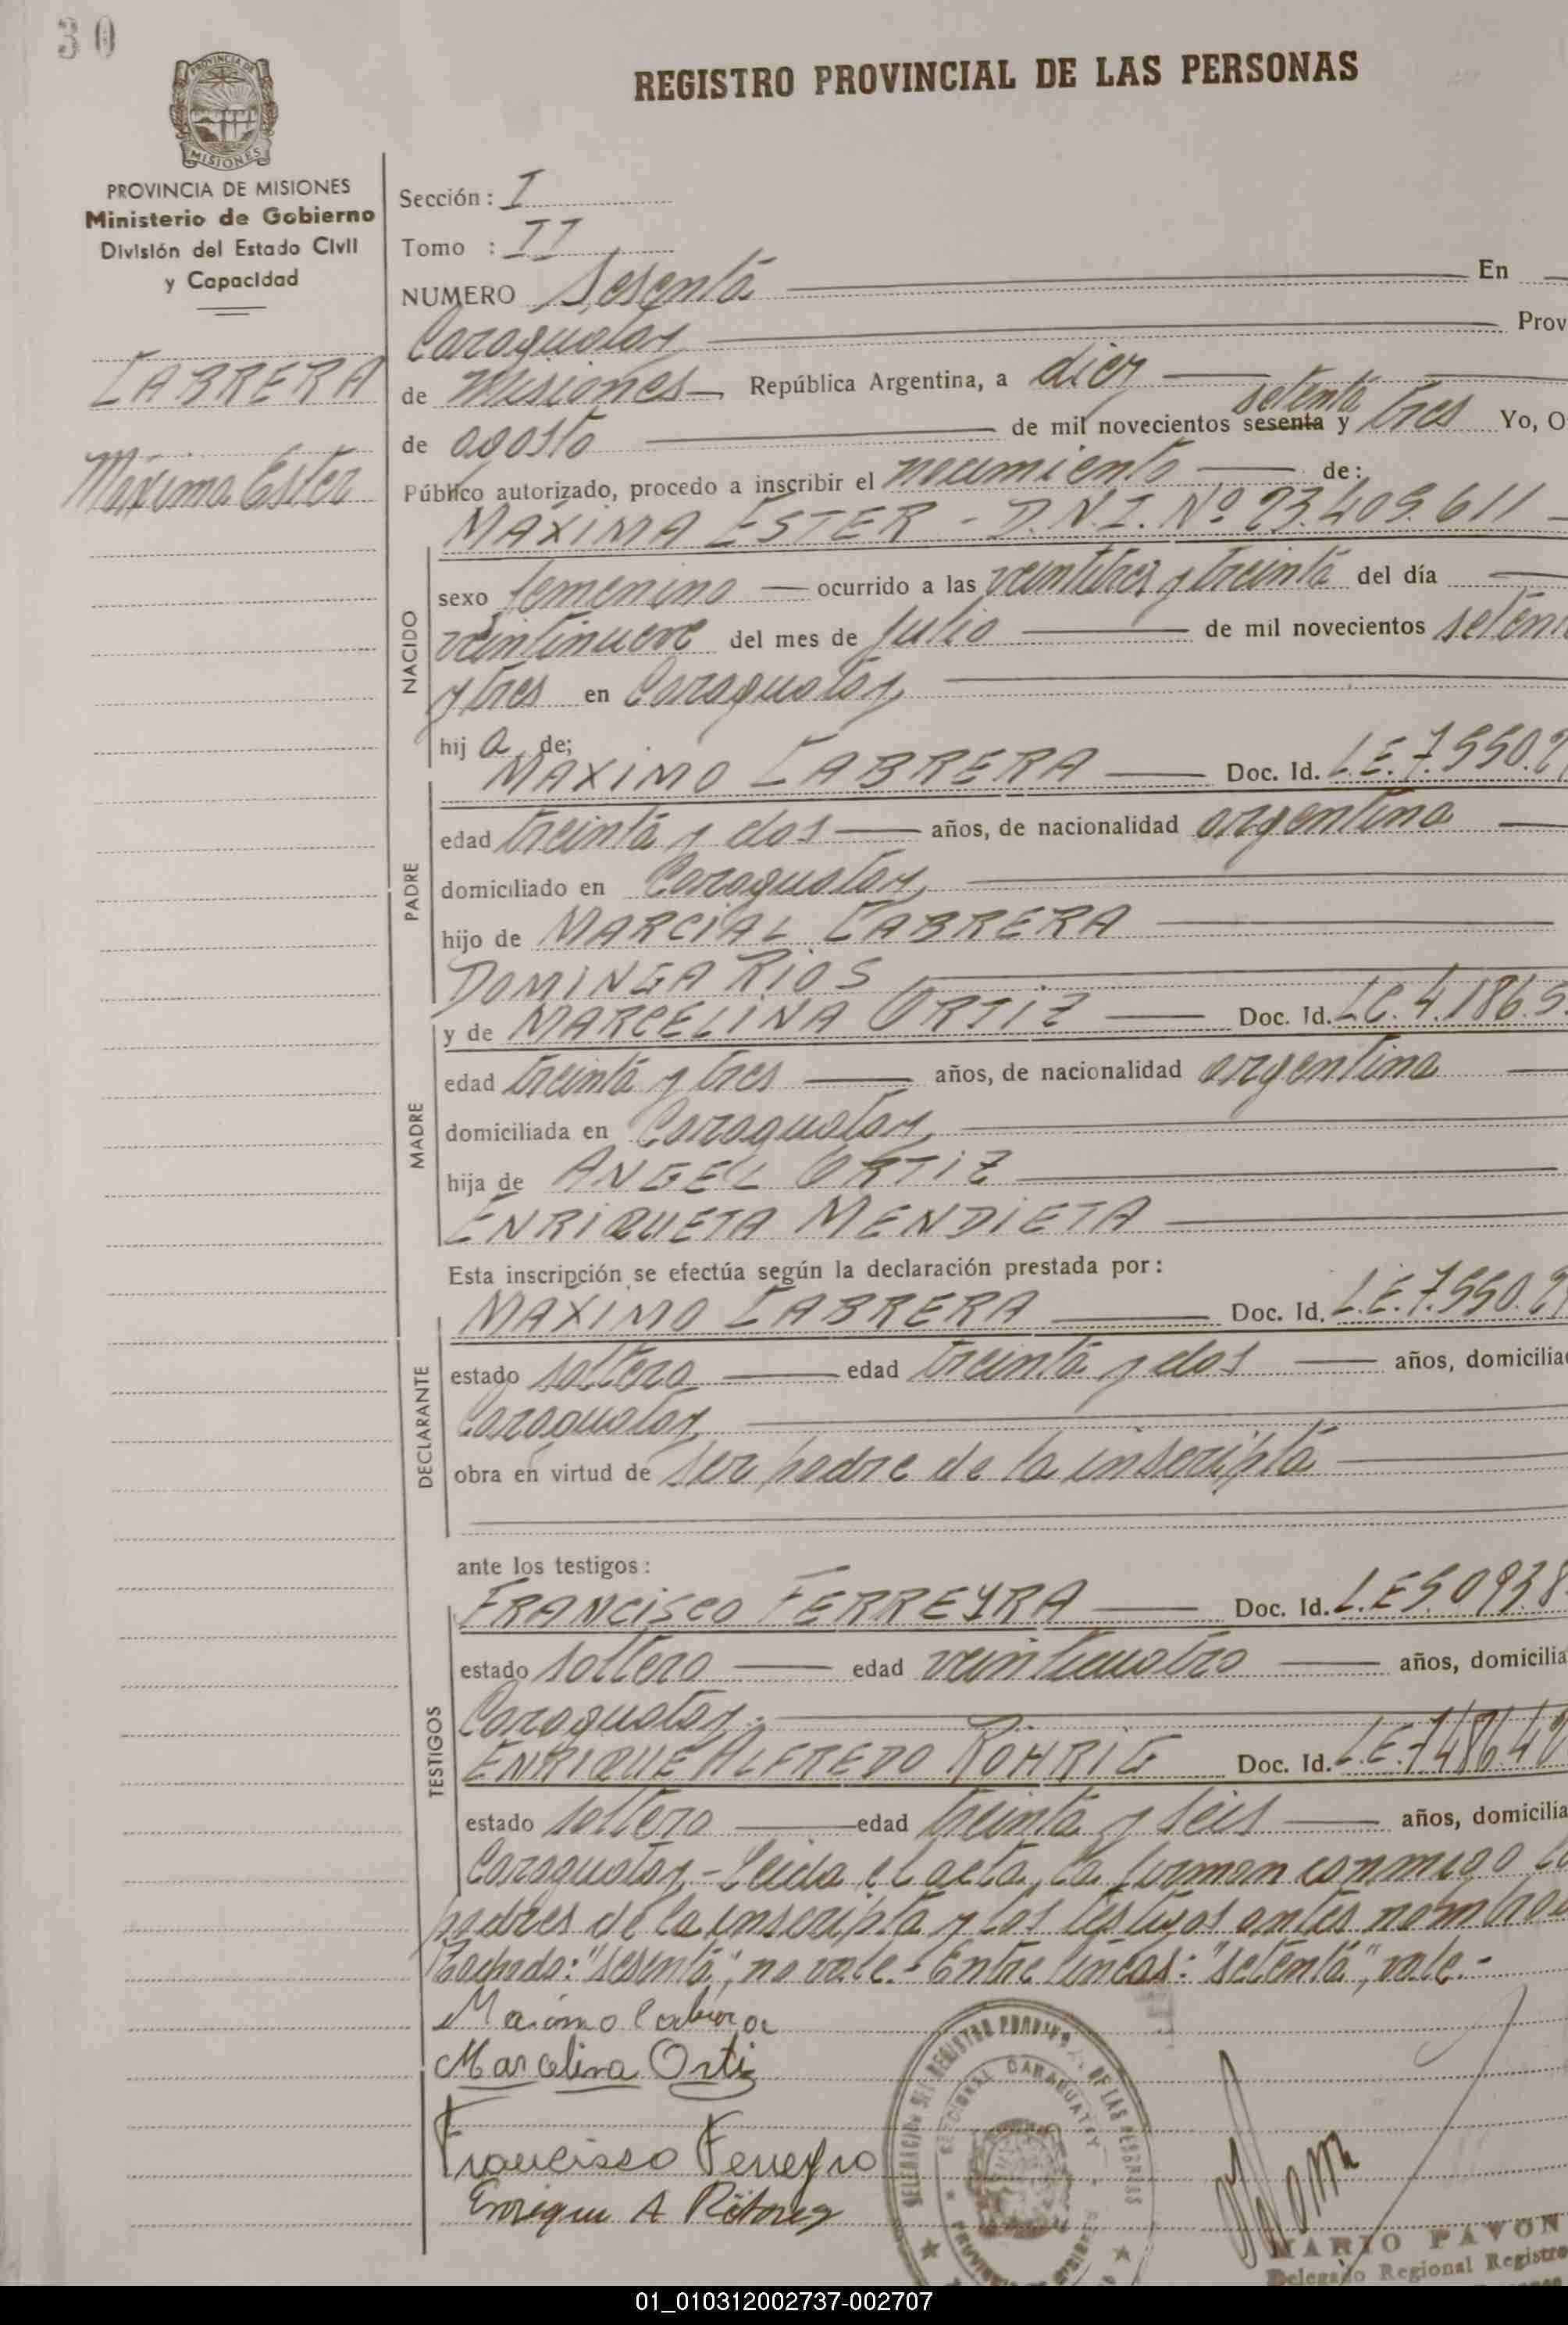 30
REGISTRO PROVINCIAL DE LAS PERSONAS
PROVINCIA DE
MISIONES
PROVINCIA DE MISIONES
Ministerio de Gobierno
División del Estado Civil
y Capacidad
CABRERA
Máxima Ester
Sección: I
Tomo : II
NUMERO Sesenta En
Caraguatay Prov
de Misiones República Argentina, a diez
setenta
de agosto de mil novecientos sesenta y tres Yo, O
Público autorizado, procedo a inscribir el nacimiento de:
MÁXIMA ESTER - D.N.I. Nº 23.409.611
NACIDO
sexo femenino ocurrido a las veintitres y treinta del día
veintinueve del mes de julio de mil novecientos seten
y tres en Caraguatay
hij a de;
MAXIMO CABRERA Doc. Id. L.E. 7.550.2
PADRE
edad treinta y dos años, de nacionalidad argentina
domiciliado en Caraguatay
hijo de MARCIAL CABRERA
DOMINGA RIOS
y de MARCELINA ORTIZ Doc. Id. L.C. 4.186.
MADRE
edad treinta y tres años, de nacionalidad argentina
domiciliada en Caraguatay
hija de ANGEL ORTIZ
ENRIQUETA MENDIETA
Esta inscripción se efectúa según la declaración prestada por:
MÁXIMO CABRERA Doc. Id. L.E. 7.550.2
DECLARANTE
estado soltero edad treinta y dos años, domicilia
Caraguatay
obra en virtud de ser padre de la inscripta
ante los testigos:
FRANCISCO FERREYRA Doc. Id. L.E 5.093.8
TESTIGOS
estado soltero edad veinticuatro años, domicilia
Caraguatay.
ENRIQUE ALFREDO ROHRIG Doc. Id. L.E. 7.486.4
estado soltero edad treinta y seis años, domicilia
Caraguatay.- Leída el acta, la firman conmigo lo
padres de la inscripta y los testigos antes nombrad
Tachado: "sesenta", no vale.- Entre líneas: "setenta", vale.-
Maximo Cabrera
Marcelina Ortiz
Francisco Ferreyra
Enrique A
DELEGACION DEL REGISTRO DE LAS PERSONAS
SECCIONAL CARAGUATAY
MARIO PAVON
Delegado Regional Registro
01_010312002737-002707